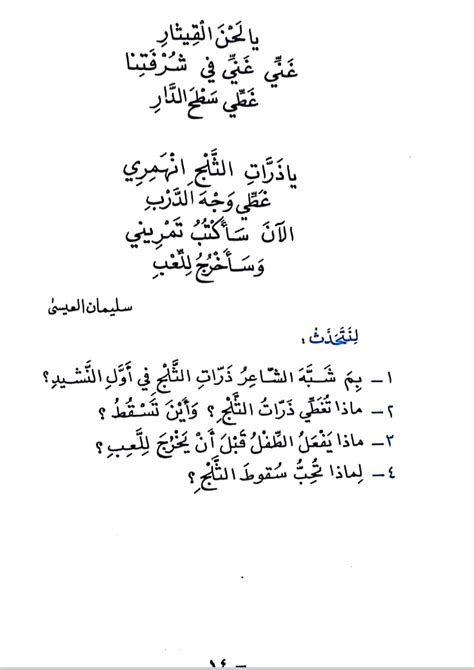 يا لَحْنَ الْقِيثارِ
غَنِّي غَنِّي في شُرْفَتِنا
غَطِّي سَطْحَ الدَّارِ
يا ذَرَّاتِ الثَّلْجِ انْهَمِرِي
غَطِّي وَجْهَ الدَّرْبِ
الآنَ سَأَكْتُبُ تَمْرِيني
وَسَأَخْرُجُ لِلَّعْبِ
سليمان العيسى
لِنَتَحَدَّثْ :
١ – بِمَ شَبَّهَ الشّاعِرُ ذَرّاتِ الثَّلْجِ في أَوَّلِ النَّشيدِ؟
٢ – ماذا تُغَطِّي ذَرّاتُ الثَّلْجِ ؟ وَأَيْنَ تَسْقُطُ ؟
٣ – ماذا يَفْعَلُ الطِّفْلُ قَبْلَ أَنْ يَخْرُجَ لِلَّعِبِ؟
٤ – لِماذا تُحِبُّ سُقوطَ الثَّلْجِ ؟
– ١٤